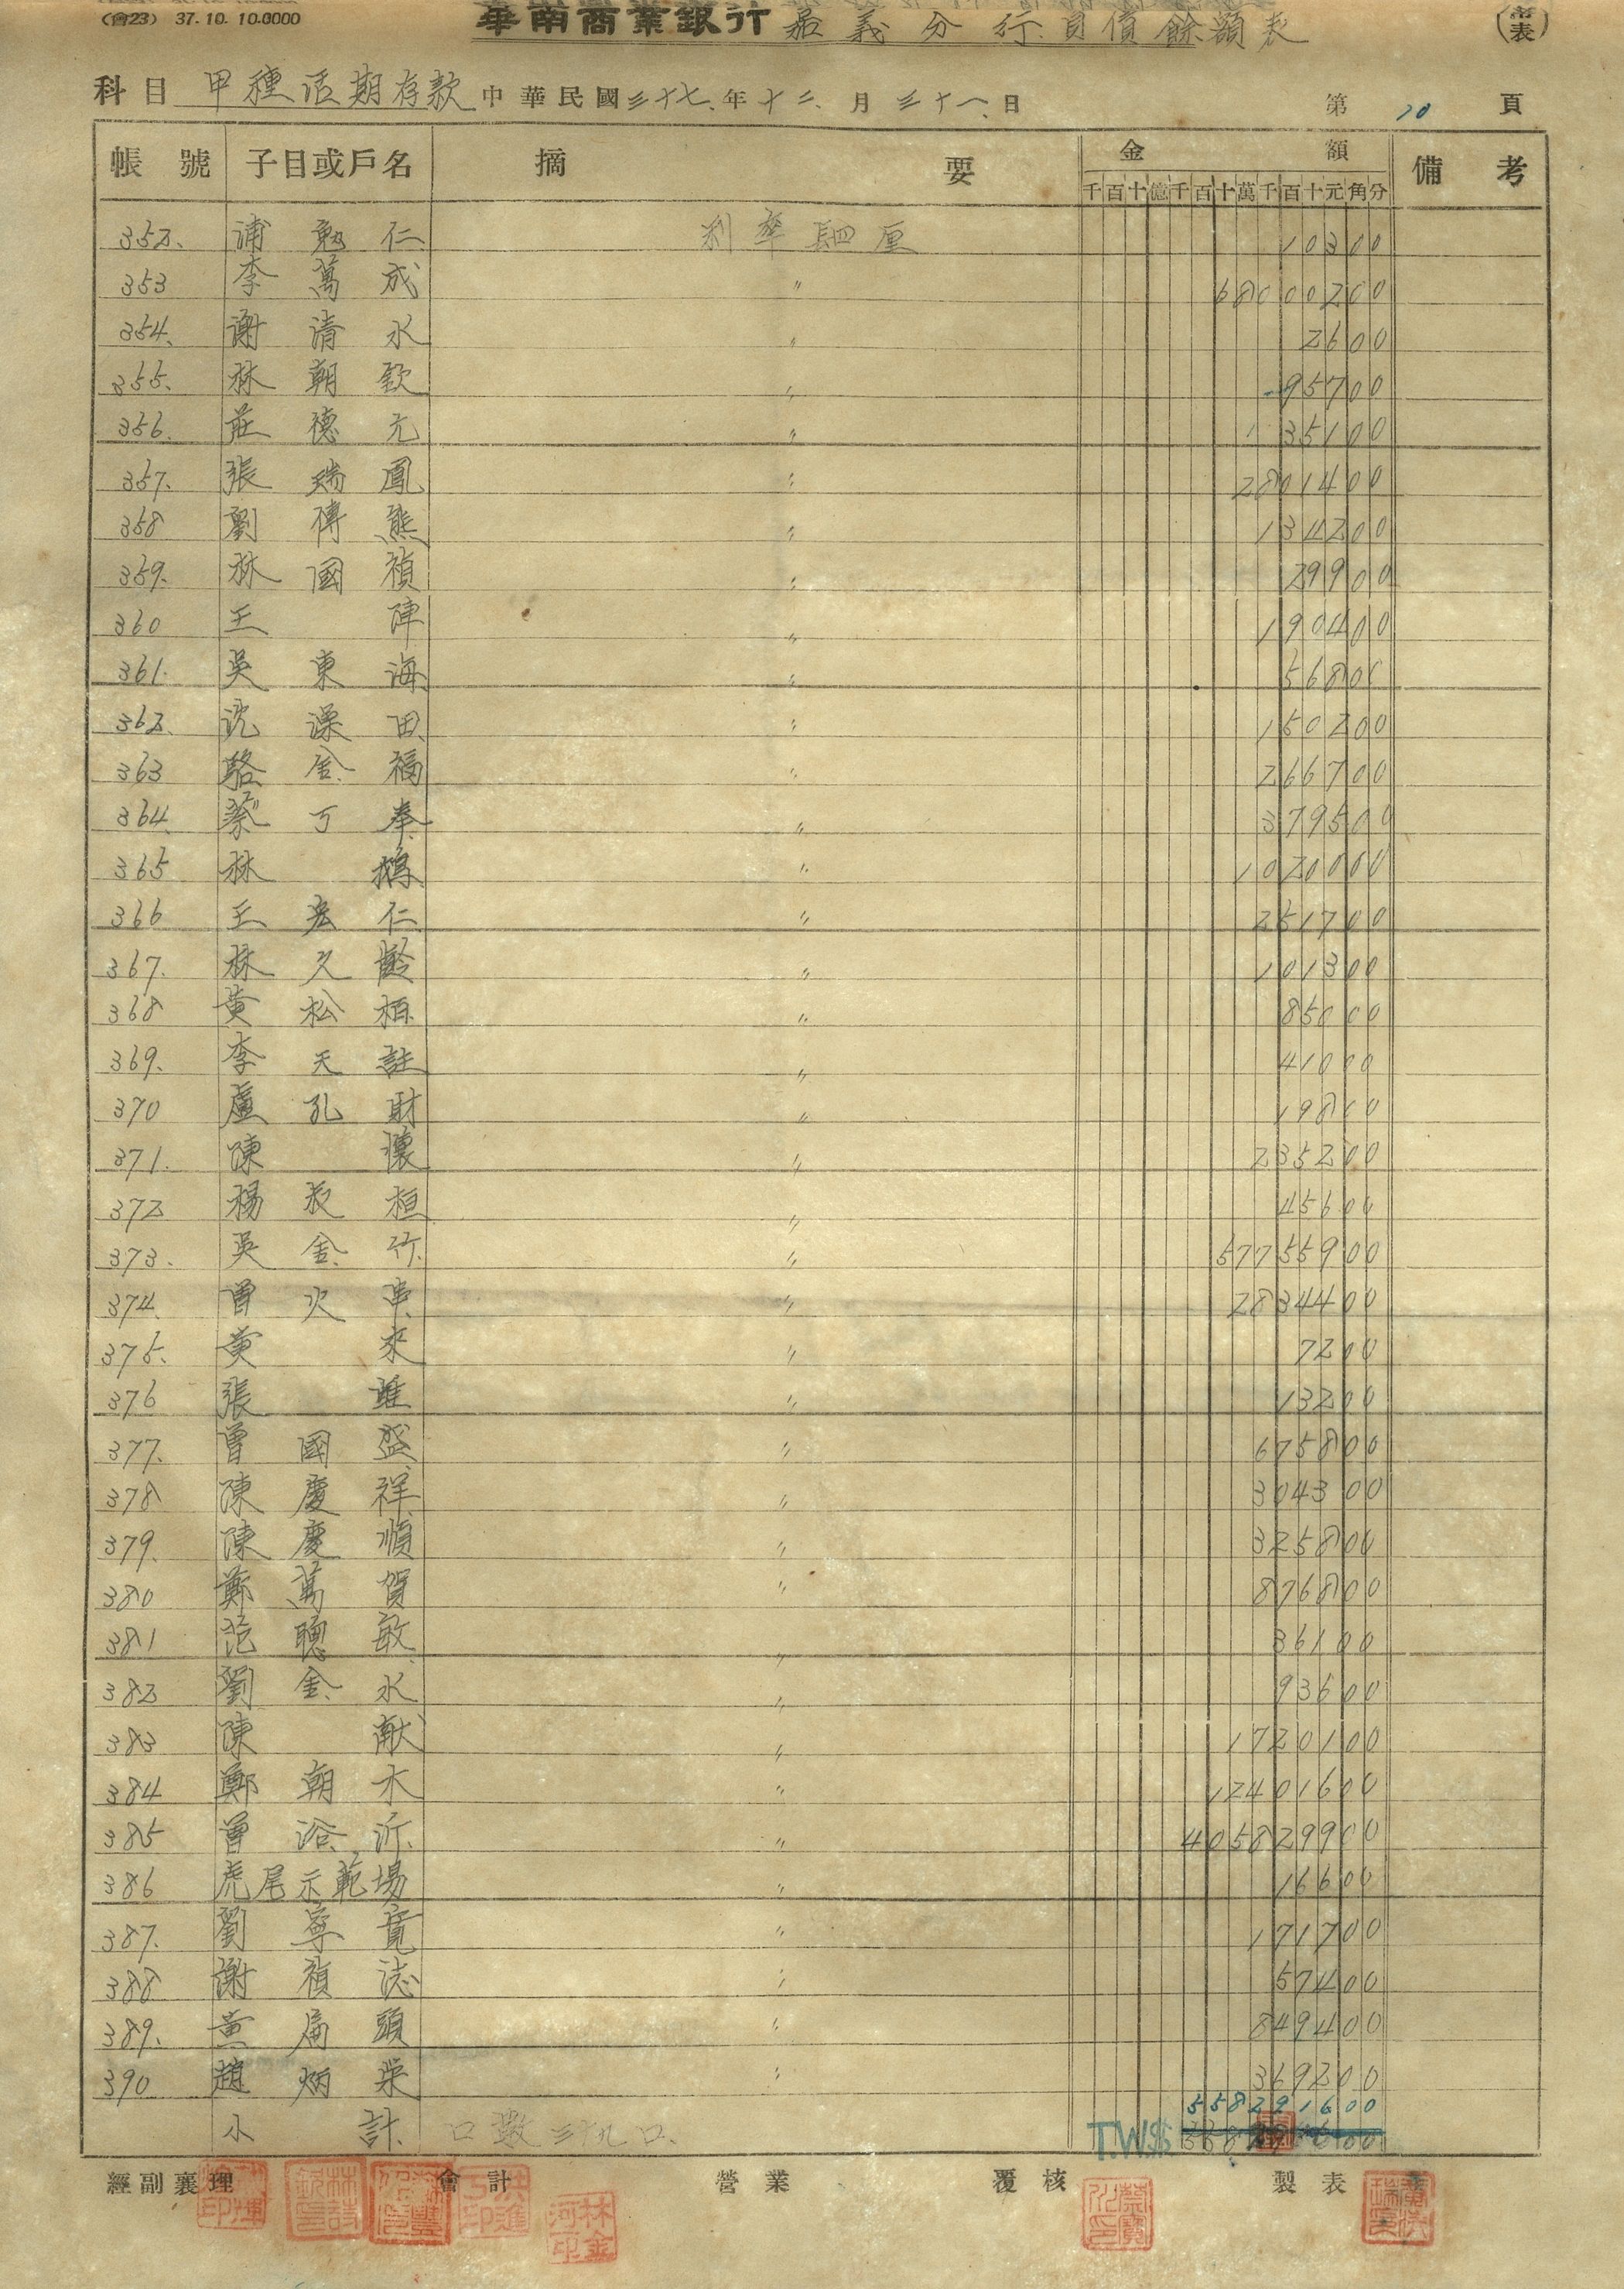 (會23) 37.10.10.0000
華南商業銀行 嘉義分行員債餘額表
科目 甲種活期存款 中華民國三十七年十二月三十一日 第 10 頁
帳號 子目或戶名 摘要 金額 備考
千百十億千百十萬千百十元角分
352. 浦勉仁 利率 厘 10300
353 李萬成 〃 68000200
354. 謝清水 〃 2600
355. 林朝欽 〃 95700
356. 莊德元 〃 35100
357. 張瑞鳳 〃 2801400
358 劉傳熊 〃 134200
359. 林國禎 〃 29900
360 王陣 〃 190400
361. 吳東海 〃 56800
362. 沈深田 〃 150200
363 駱金福 〃 266700
364. 蔡丁奉 〃 379500
365 林鴻 〃 1020000
366 王宏仁 〃 251700
367. 林久齡 〃 101300
368 黃松栢 〃 85000
369. 李天註 〃 41000
370 盧孔財 〃 19800
371. 陳懷 〃 235200
372 楊辰桓 〃 45600
373. 吳金竹 〃 57755900
374. 曾火 〃 2834400
375. 黃來 〃 7200
376 張 〃 13200
377. 曾國盛 〃 675800
378 陳慶祥 〃 304300
379. 陳慶順 〃 325800
380 鄭萬賀 〃 876800
381 范聰敏 〃 36100
382 劉金水 〃 93600
383 陳献 〃 1720100
384 鄭朝木 〃 12401600
385 曾浴沂 〃 405829900
386 虎尾示範場 〃 16600
387. 劉寧寬 〃 171700
388 謝禎誌 〃 57400
389. 黃扁頭 〃 849400
390 趙炳榮 〃 369200
558291600
小計 口數三九口 T.W.$
經副襄理 會計 營業 覆核 製表